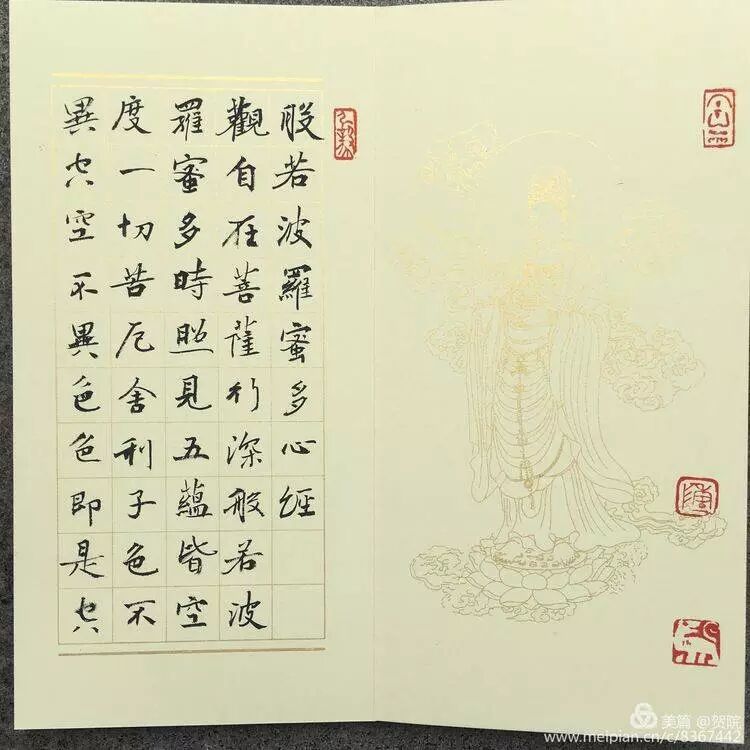 般若波羅蜜多心經
觀自在菩薩行深般若波
羅蜜多時照見五蘊皆空
度一切苦厄舍利子色不
異空空不異色色即是空
美篇 @贺院
www.meipian.cn/c/8367442